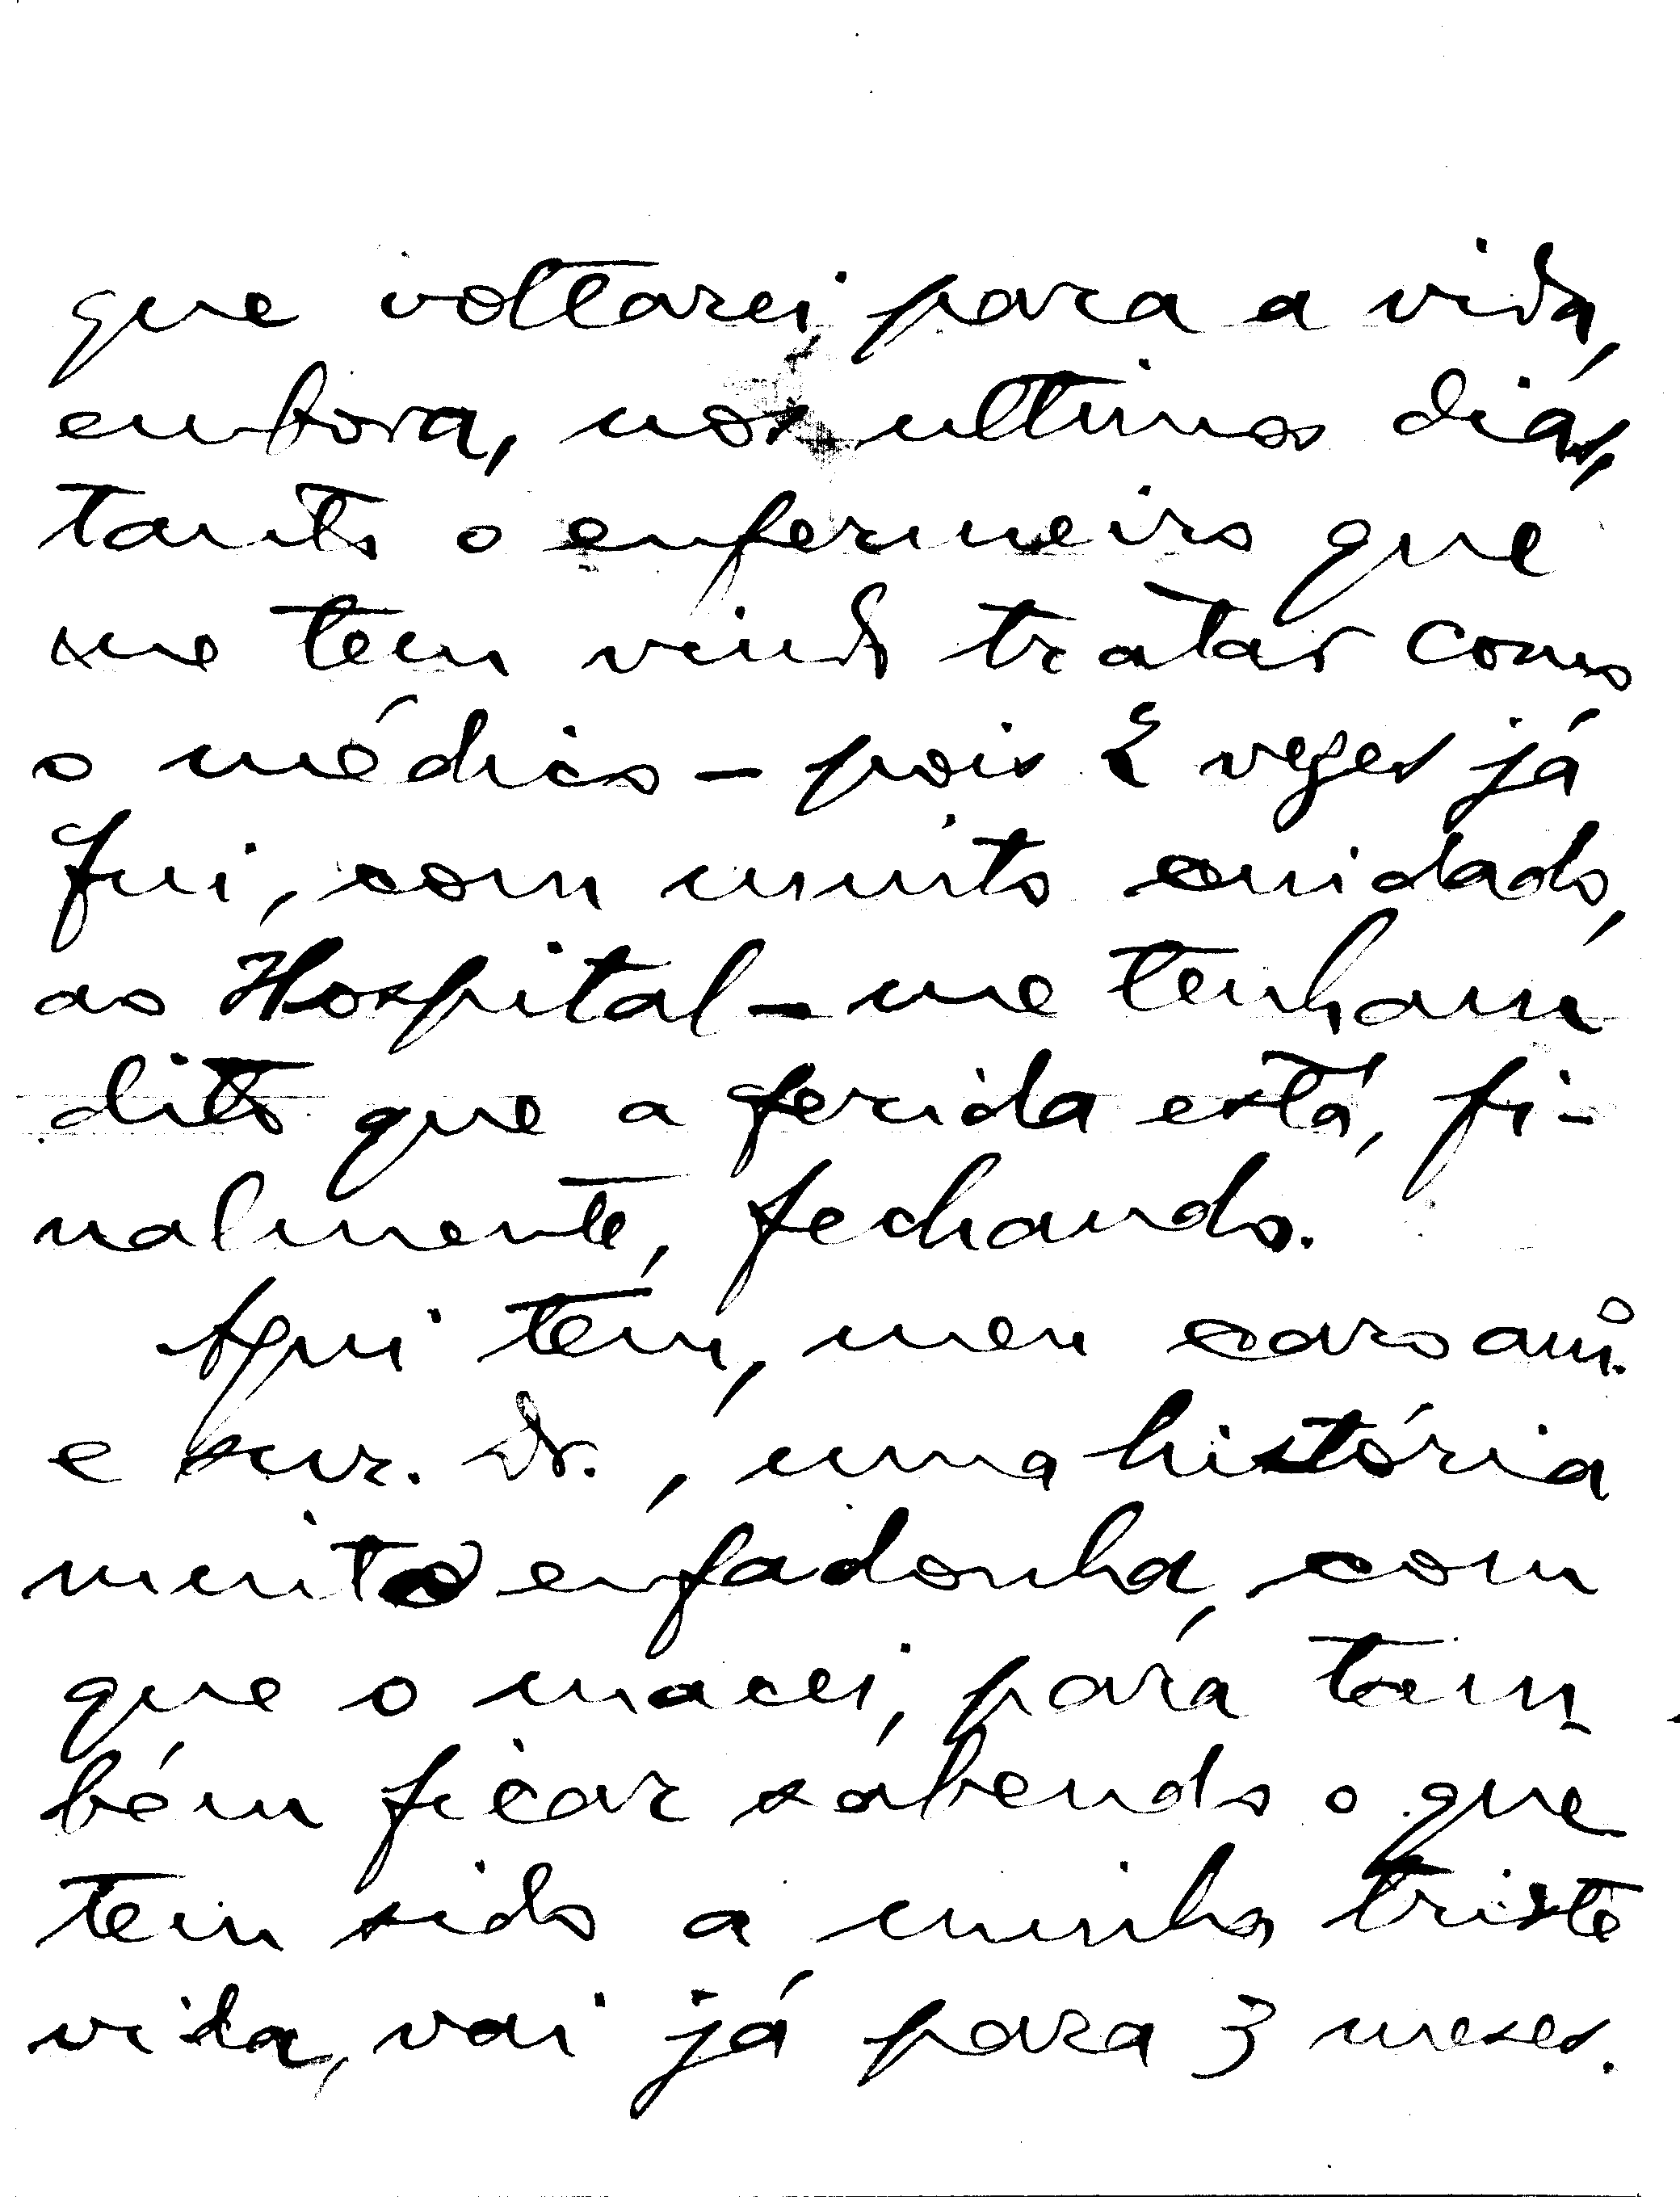 que voltarei para a vida,
embora, nos ultimos dias,
tanto o enfermeiro que
me tem vindo tratar como
o médico – pois 2 vezes já
fui, com muito cuidado,
ao Hospital – me tenham
dito que a ferida está, fi-
nalmente, fechando.
Aqui tem, meu caro am.º
e snr. Dr., uma história
muito enfadonha, com
que o macei, para tam-
bém ficar sabendo o que
tem sido a minha triste
vida, vai já para 3 meses.